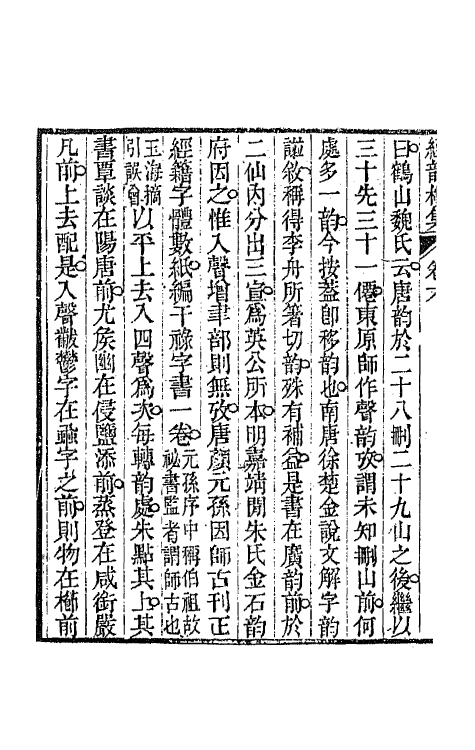 經韵樓集 卷六
曰鶴山魏氏云唐韵於二十八刪二十九山之後繼以
三十先三十一僊東原師作聲韵攷謂未知刪山前何
處多一韵今按葢卽移韵也南唐徐楚金說文解字韵
譜敘稱得李舟所箸切韵殊有補益是書在廣韵前於
二仙內分出三宣爲英公所本明嘉靖閒朱氏金石韵
府因之惟入聲增聿部則無攷唐顏元孫因師古刊正
經籍字體數紙編干祿字書一卷元孫序中稱伯祖故祕書監者謂師古也
玉海摘引誤曾以平上去入四聲爲次每轉韵處朱點其上其
書覃談在陽唐前尤矦幽在侵鹽添前蒸登在咸銜嚴
凡前上去配是入聲黻鬱字在蝨字之前則物在櫛前